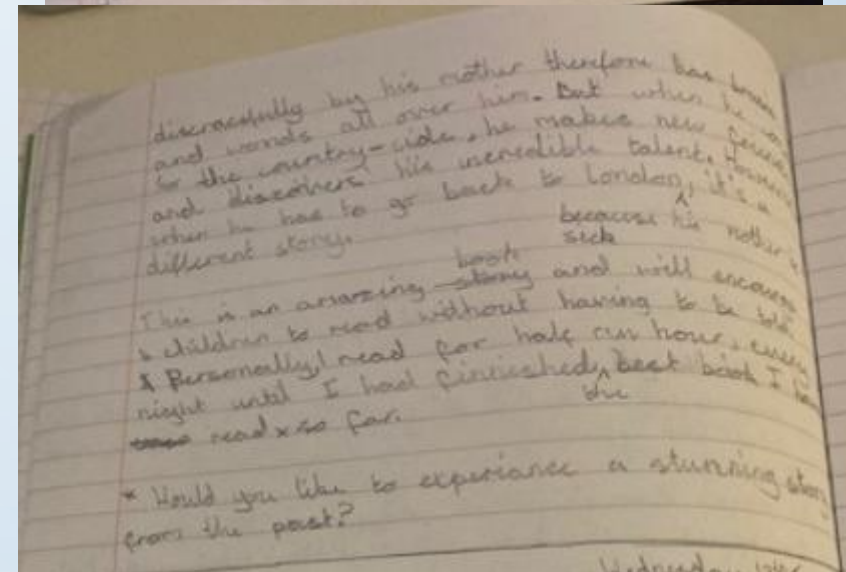 discracefully by his mother therefore has
and wonds all over him. But when he
to the country-side, he makes new
and discovers his incredible talent. However
when he has to go back to London, it's a
because his mother
sick
different story.
book
This is an amazing story and will encourage
children to read without having to be told
Personally, I read for half an hour, every
night until I had finished, best book I
the
read so far.
* Would you like to experiance a stunning story
from the past?
Wednesday